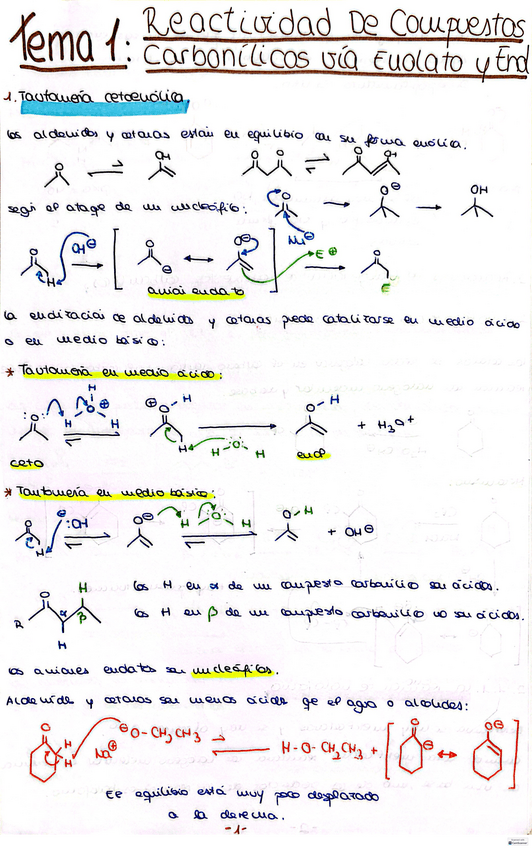 Tema 1: Reactividad De Compuestos
Carbonílicos vía Enolato y Enol
1. Tautomería cetoenólica
Los aldehidos y cetonas están en equilibrio con su forma enólica.
O OH O O O OH
según el ataque de un nucleófilo: O Nu⊖ O⊖ OH
O H OH⊖ O ⊖ O⊖ E⊕ O E
anión enolato
La enolización de aldehidos y cetonas puede catalizarse en medio ácido
o en medio básico:
* Tautomería en medio ácido:
O H O⊕ H H ⊕O H H H O H O H + H3O+
ceto enol
* Tautomería en medio básico:
O H ⊖:OH O⊖ H O H O H + OH⊖
R O α β H H
Los H en α de un compuesto carbonílico son ácidos.
Los H en β de un compuesto carbonílico no son ácidos.
Los aniones enolato son nucleófilos.
Aldehido y cetonas son menos ácidos que el agua o alcoholes:
O H H Na⊕ ⊖O-CH2CH3 H-O-CH2CH3 + O ⊖ O⊖
Ee equilibrio está muy poco desplazado
a la derecha.
-1-